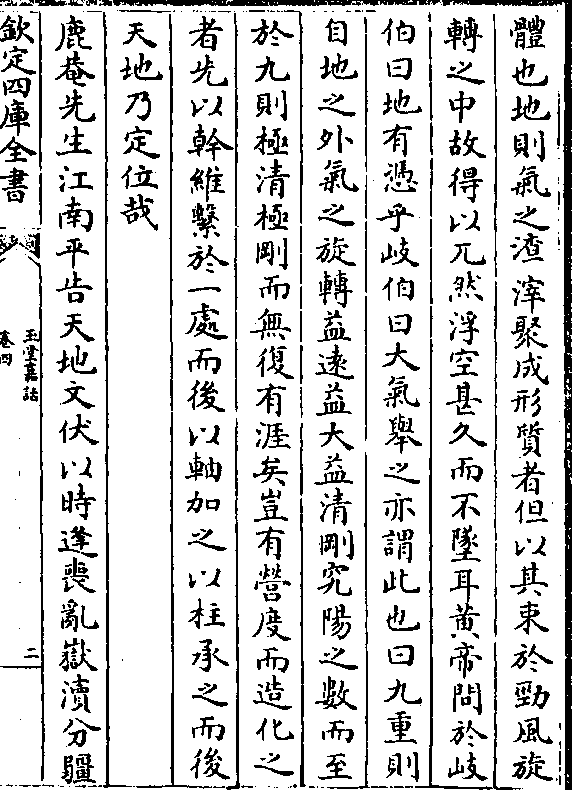 體也地則氣之渣滓聚成形質者但以其束於勁風旋
轉之中故得以兀然浮空甚久而不墜耳黄帝問於岐
伯曰地有憑乎岐伯曰大氣舉之亦謂此也曰九重則
自地之外氣之旋轉益逺益大益清剛究陽之數而至
於九則極清極剛而無復有涯矣豈有營度而造化之
者先以幹維繫於一處而後以軸加之以柱承之而後
天地乃定位哉
鹿菴先生江南平告天地文伏以時逢喪亂嶽瀆分疆
欽定四庫全書
玉堂嘉話
卷四
二